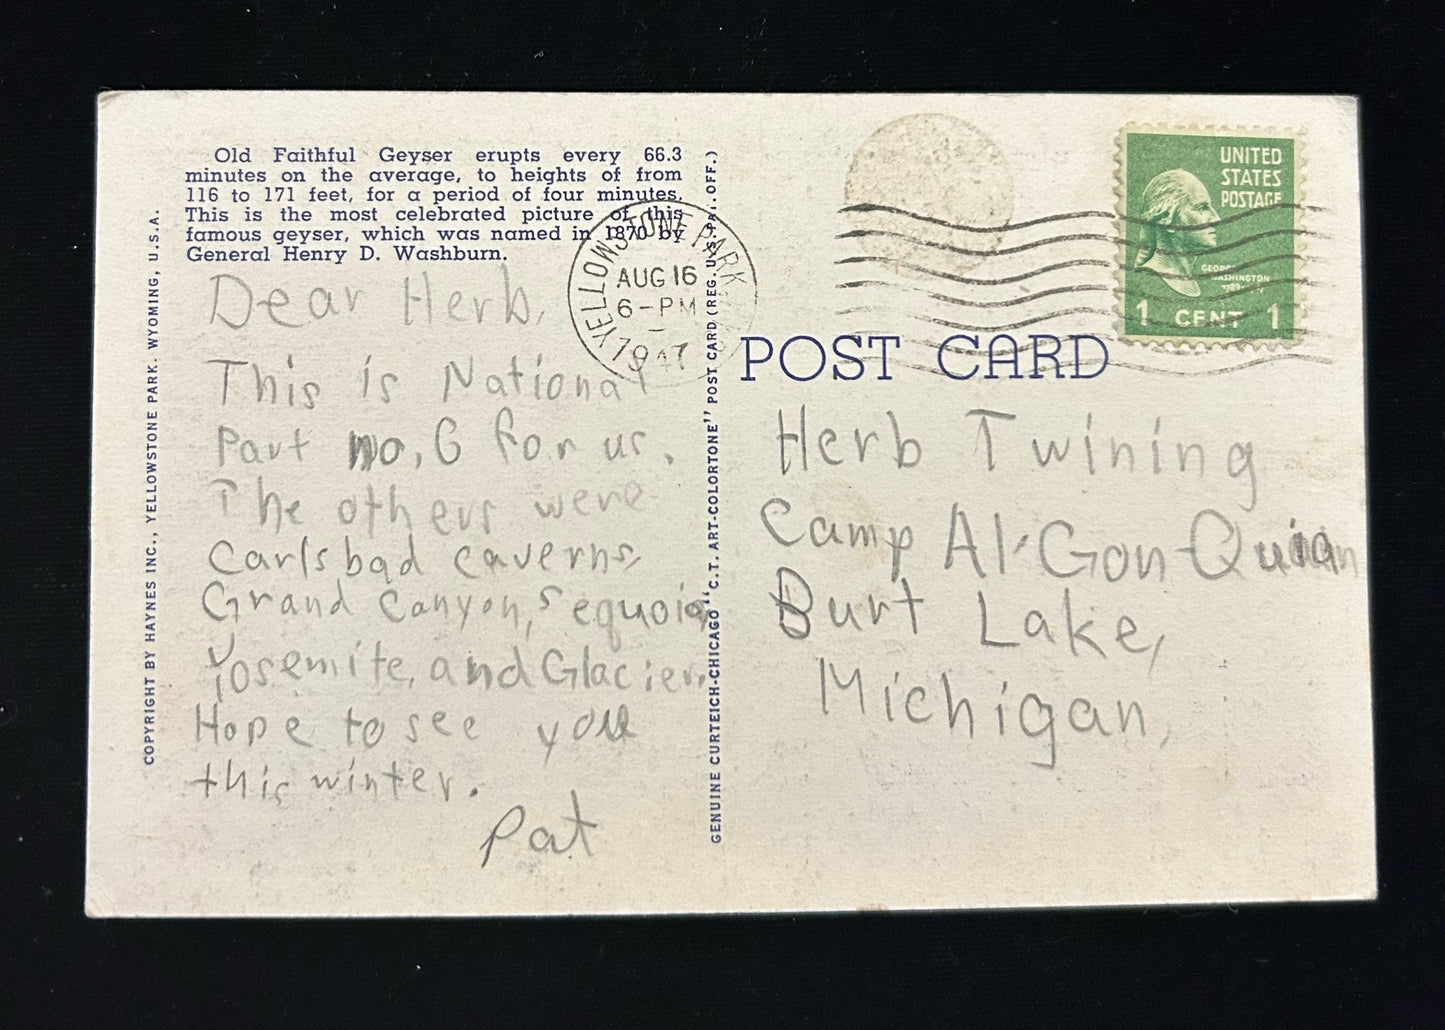 Old Faithful Geyser erupts every 66.3
minutes on the average, to heights of from
116 to 171 feet, for a period of four minutes.
This is the most celebrated picture of this
famous geyser, which was named in 1870 by
General Henry D. Washburn.
COPYRIGHT BY HAYNES INC., YELLOWSTONE PARK. WYOMING, U.S.A.
Dear Herb,
This is National
Part no, 6 for us.
The others were
Carlsbad caverns,
Grand Canyon, Sequoia
Yosemite, and Glacier.
Hope to see you
this winter.
Pat
YELLOWSTONE PARK
AUG 16
6-PM
1947
GENUINE CURTEICH-CHICAGO "C.T. ART-COLORTONE" POST CARD (REG. U.S. PAT. OFF.)
UNITED
STATES
POSTAGE
GEORGE
WASHINGTON
1 CENT 1
POST CARD
Herb Twining
Camp Al-Gon-Quian
Burt Lake,
Michigan,